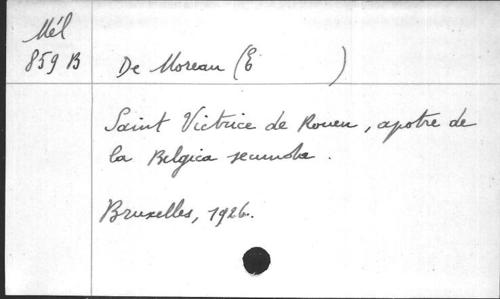 Mél
859 B
De Moreau (E )
Saint Victrice de Rouen, apotre de
la Belgica secunda.
Bruxelles, 1926.